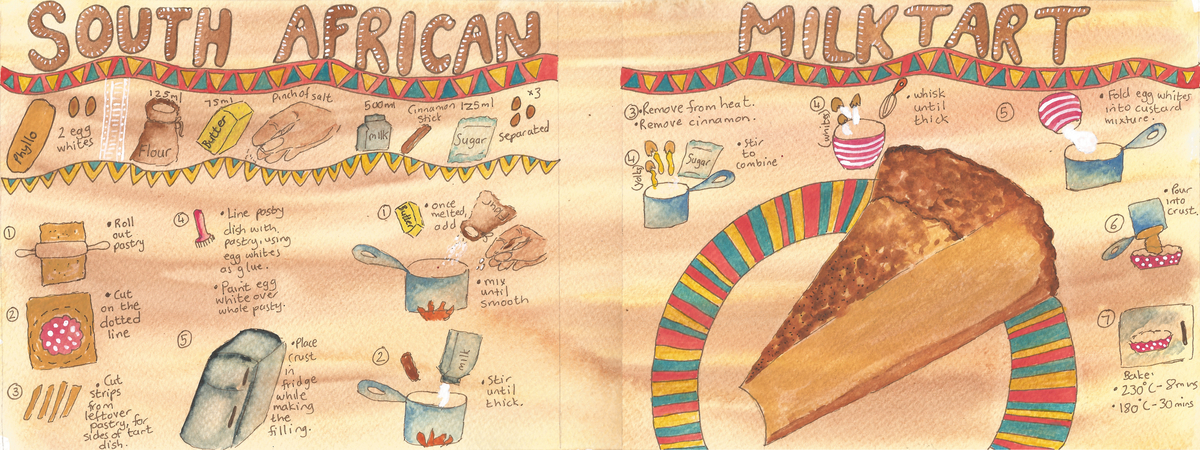 SOUTH AFRICAN
MILKTART
Phyllo
2 egg
whites
125ml
Flour
75ml
Butter
Pinch of salt
500ml
milk
Cinnamon
Stick
125ml
Sugar
x3
separated
1
• Roll
out
pastry
2
• Cut
on the
dotted
line
3
• Cut
strips
from
leftover
pastry, for
sides of tart
dish.
4
• Line pastry
dish with
pastry, using
egg whites
as glue.
• Paint egg
white over
whole pastry.
5
• Place
crust
in
fridge
while
making
the
filling.
1
Butter
• once
melted,
add
• mix
until
smooth
2
milk
• Stir
until
thick.
3
• Remove from heat.
• Remove cinnamon.
4
(yolks)
Sugar
• Stir
to
combine.
4
(whites)
• whisk
until
thick
5
• Fold egg whites
into custard
mixture.
6
• Pour
into
crust.
7
Bake:
• 230°C - 8mins
• 180°C - 30 mins